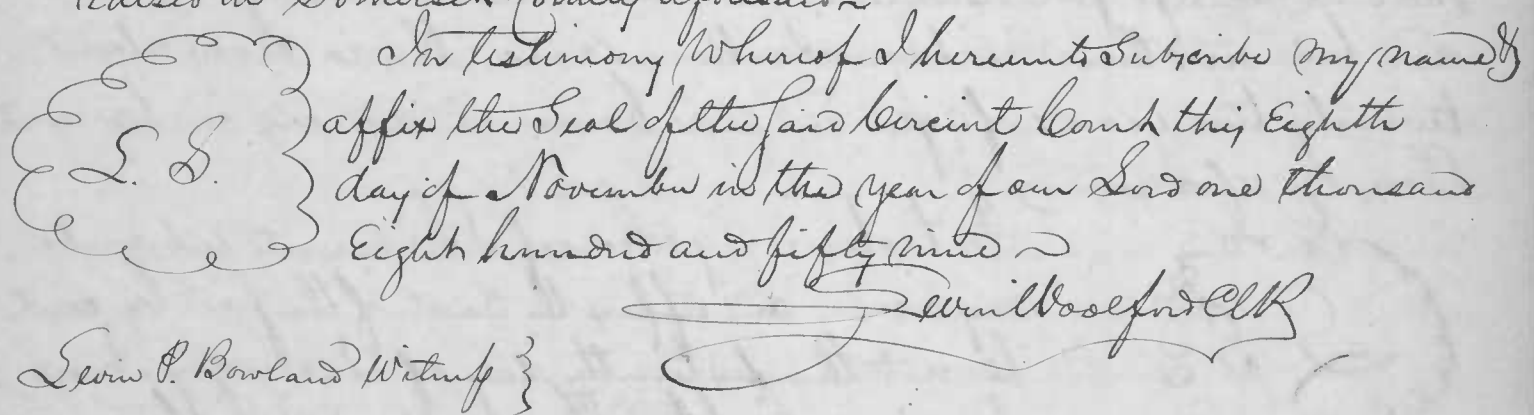 raised in Somerset County aforesaid~
In testimony Whereof I hereunto Subscribe my name &
affix the Seal of the Said Circuit Court this Eighth
L. S.
day of November in the year of our Lord one thousand
Eight hundred and fifty nine ~
Levin Woolford Clk
Levin P. Bowland Witness }